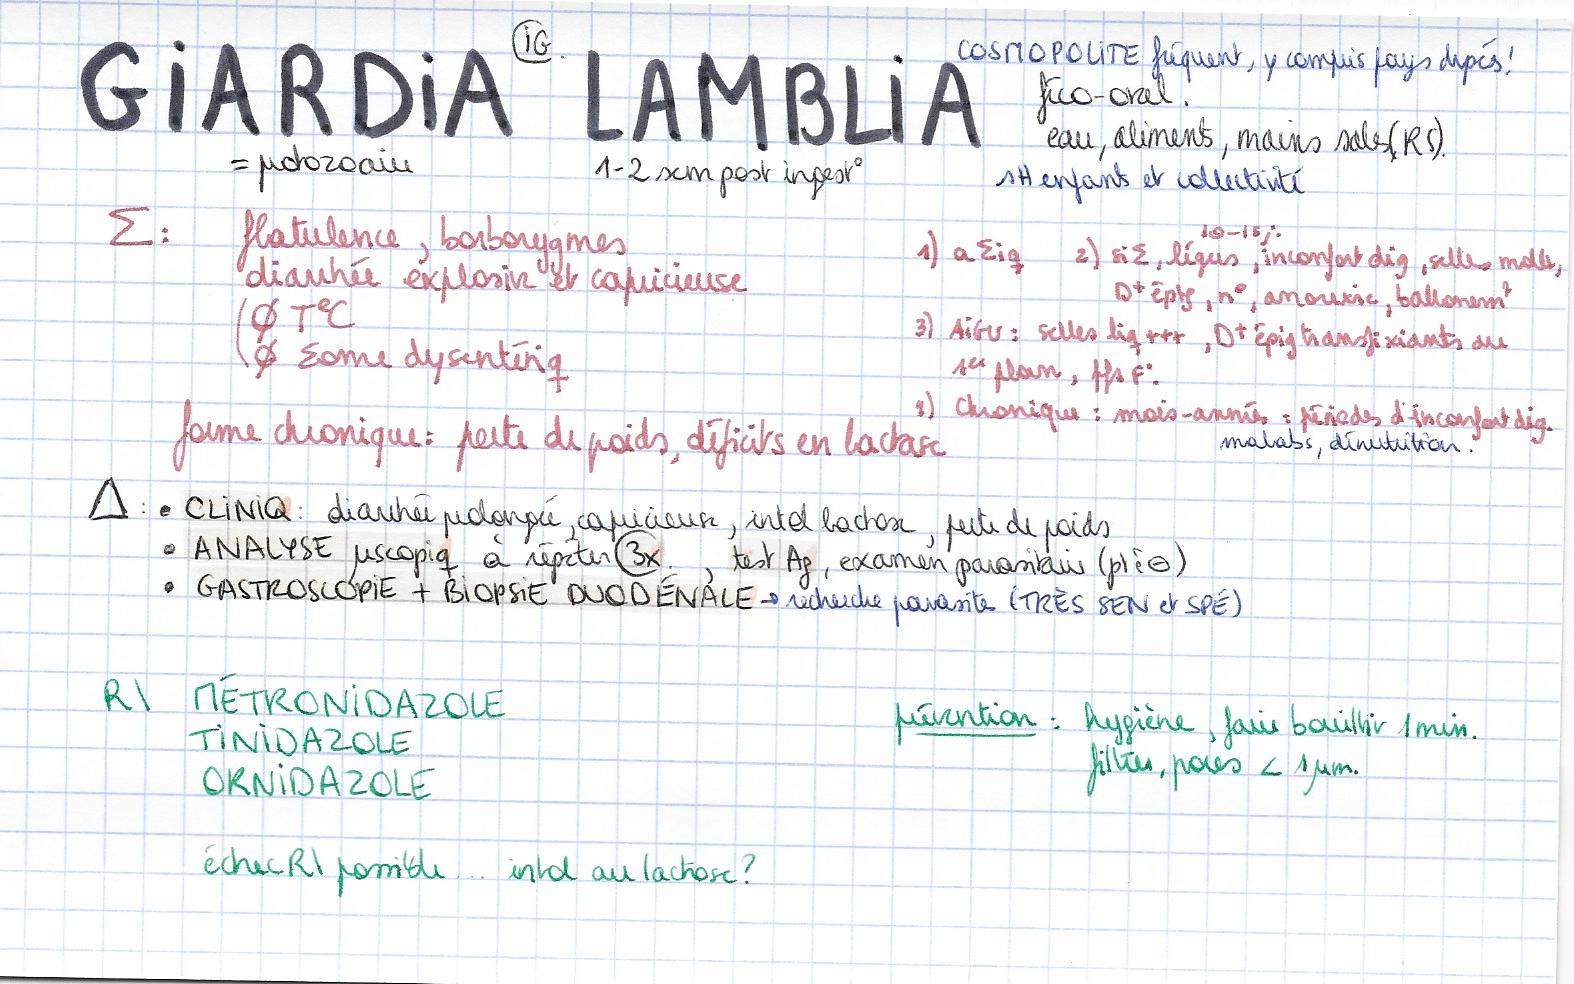 GiARDiA iG. LAMBLiA
COSMOPOLITE fréquent, y compris pays dvpés!
féco-oral.
eau, aliments, mains sales (RS).
= protozoaire
1-2 sem post ingest°
enfants et collectivité
Σ: flatulence, borborygmes
diarrhée explosive et capricieuse
∅ T°C
∅ Σome dysentériq
forme chronique: perte de poids, déficits en lactase
10-15j:
1) a Σiq 2) si Σ, légers, inconfort dig, selles molles,
D+ épig, n°, anorexie, ballonemt
3) AiGU: selles liq +++, D+ épig transfixiants au
1er plan, pfs F°.
4) Chronique: mois-années = périodes d'inconfort dig.
malabs, dénutrition.
Δ: • CLiNiQ: diarrhée prolongée, capricieuse, intol lactose, perte de poids
• ANALYSE µscopiq à répéter 3x., test Ag, examen parasitaire (pfs ⊖)
• GASTROSCOPiE + BiOPSiE DUODÉNALE → recherche parasite (TRÈS SEN et SPÉ)
R\ MÉTRONiDAZOLE
TiNiDAZOLE
ORNiDAZOLE
prévention: hygiène, faire bouillir 1 min.
filtres, pores < 1 µm.
échec R\ possible... intol au lactose?